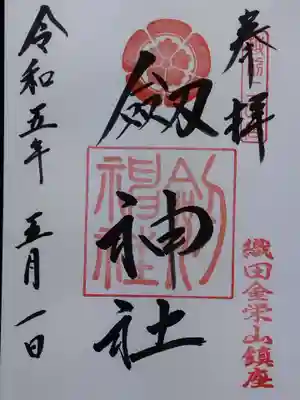 奉拝
織田金栄山鎮座
劔神社
劔神社
令和五年 五月一日